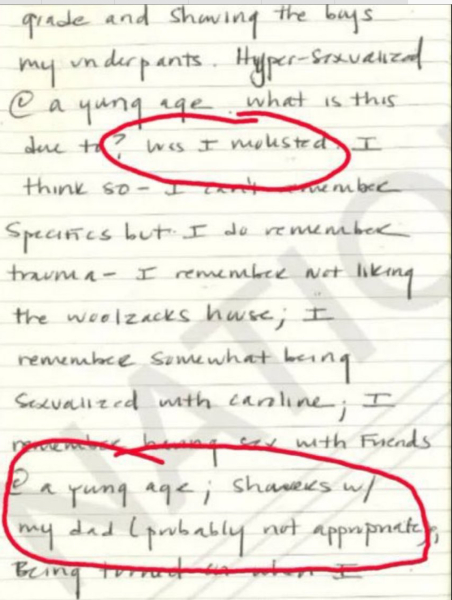 grade and showing the boys
my underpants. Hyper-sexualized
@ a yung age. what is this
due to? Was I molested. I
think so - I can't remember
specifics but I do remember
trauma - I remember not liking
the woolzacks house; I
remember somewhat being
sexualized with caroline; I
remember having sex with Friends
@ a yung age; showers w/
my dad (probably not appropriate),
Being turned on when I
NATIO